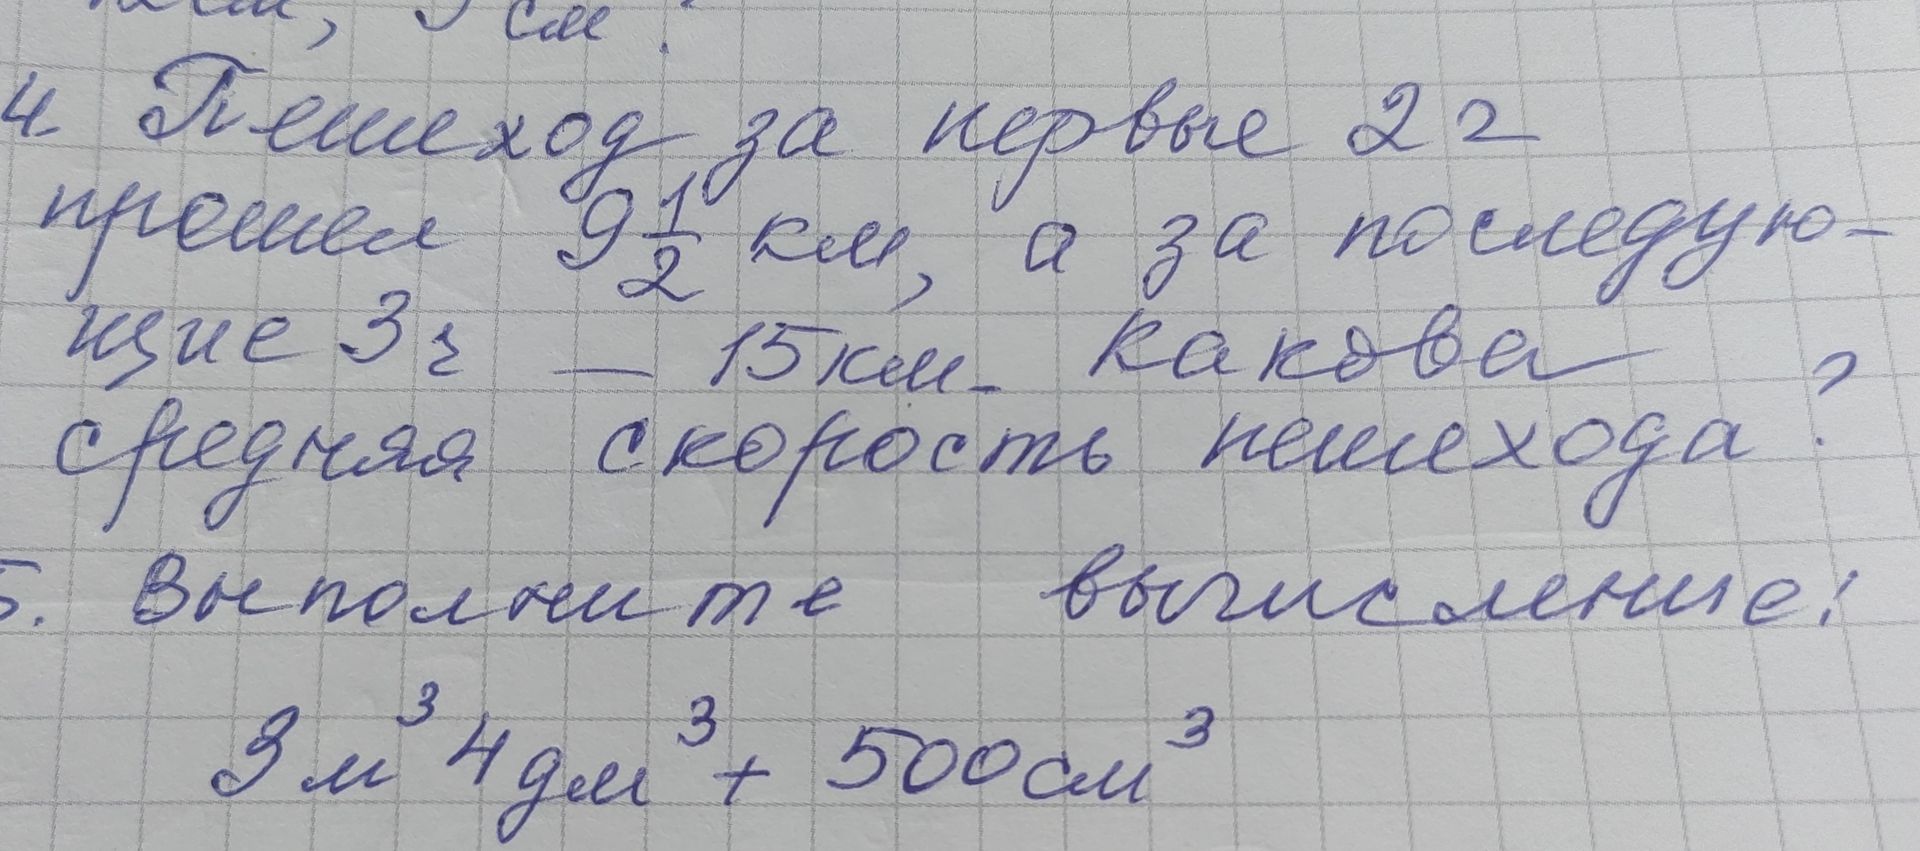 , 5 см?
4. Пешеход за первые 2 ч
прошел 9 1/2 км, а за последую-
щие 3 ч — 15 км. Какова
средняя скорость пешехода?
5. Выполните вычисление:
3 м³ 4 дм³ + 500 см³